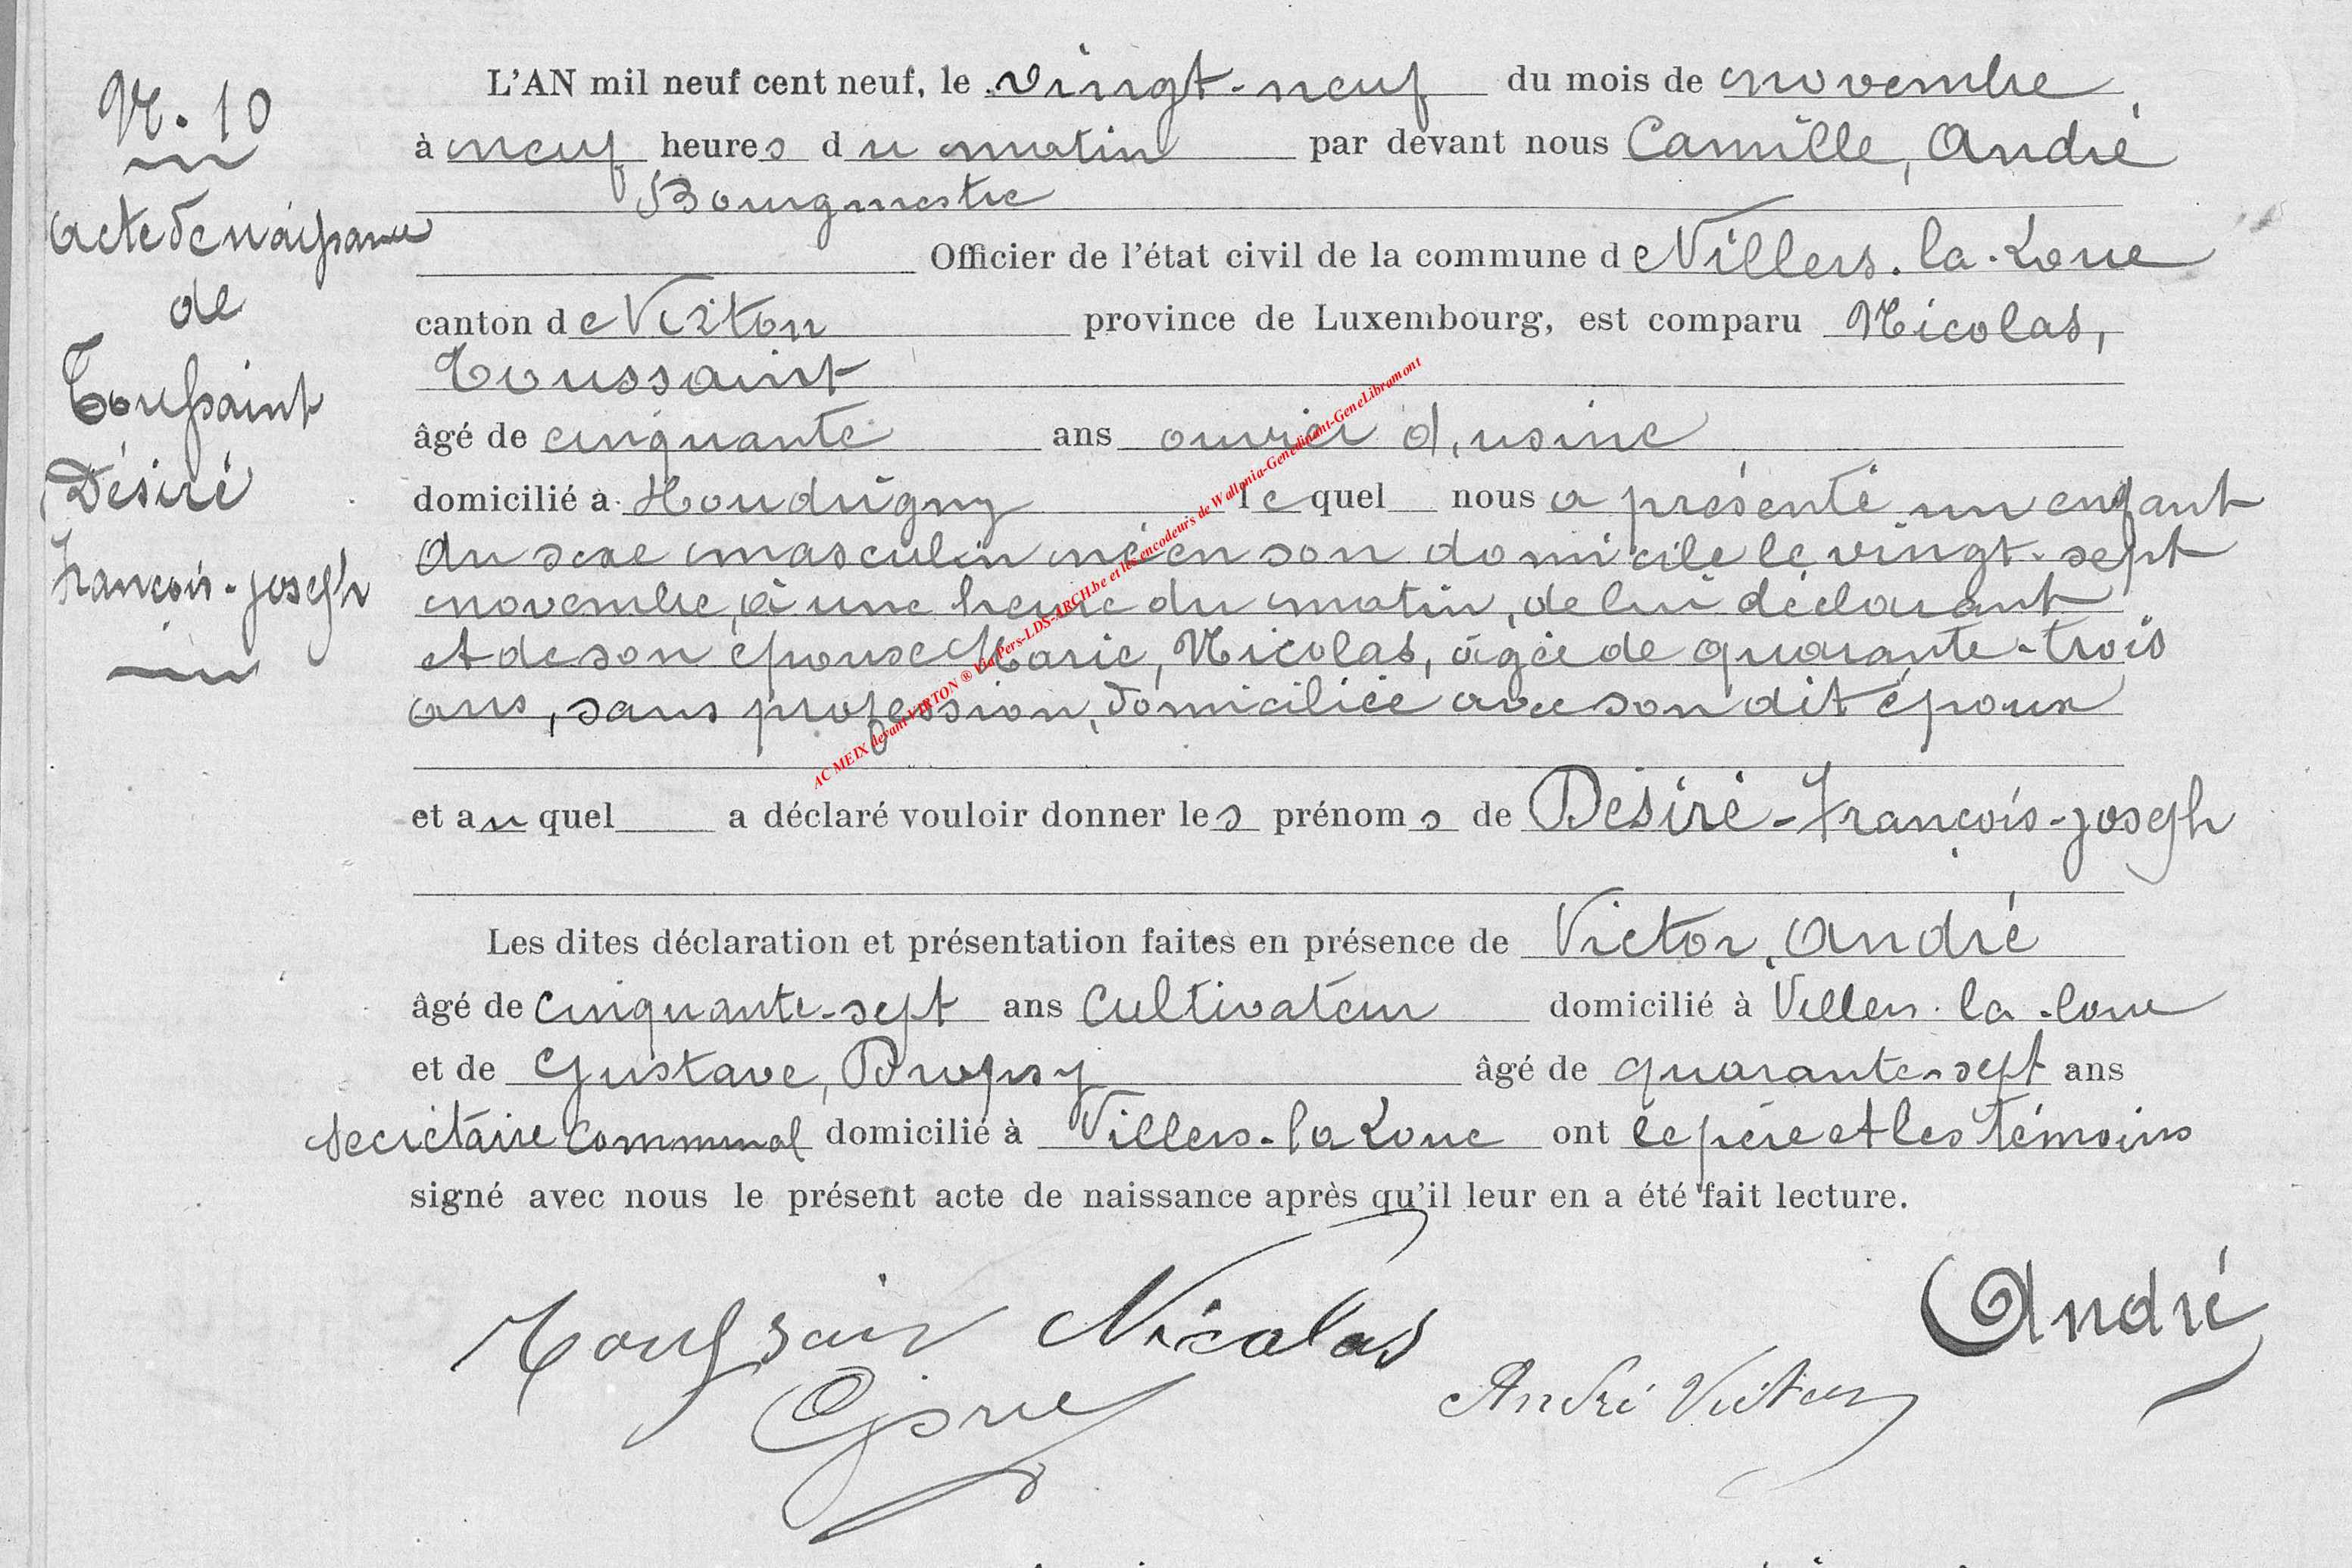 N. 10
acte de naissance
de
Toussaint
Désiré
François-joseph
L'AN mil neuf cent neuf, le vingt-neuf du mois de novembre,
à neuf heures du matin par devant nous Camille, André
Bourgmestre
Officier de l'état civil de la commune de Villers-la-Loue
canton de Virton province de Luxembourg, est comparu Nicolas,
Toussaint
âgé de cinquante ans ouvrier d'usine
domicilié à Houdrigny lequel nous a présenté un enfant
du sexe masculin né en son domicile le vingt-sept
novembre, à une heure du matin, de lui déclarant
et de son épouse Marie, Nicolas, âgée de quarante-trois
ans, sans profession, domiciliée avec son dit époux
et au quel a déclaré vouloir donner les prénoms de Désiré-François-joseph
Les dites déclaration et présentation faites en présence de Victor, André
âgé de cinquante-sept ans cultivateur domicilié à Villers-la-loue
et de Gustave,âgé de quarante-sept ans
secrétaire communal domicilié à Villers-la Loue ont le père et les témoins
signé avec nous le présent acte de naissance après qu'il leur en a été fait lecture.
Nicolas
André
André Victor
AC MEIX devant VIRTON ® Via Pers-LDS-ARCH.be et les encodeurs de Wallonia-Genedinant-GeneLibramont